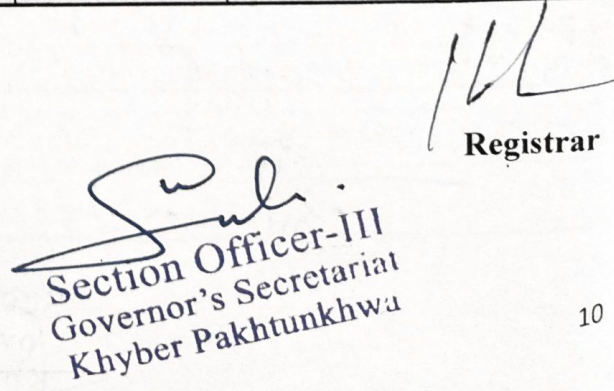 Registrar
Section Officer-III
Governor's Secretariat
Khyber Pakhtunkhwa
10